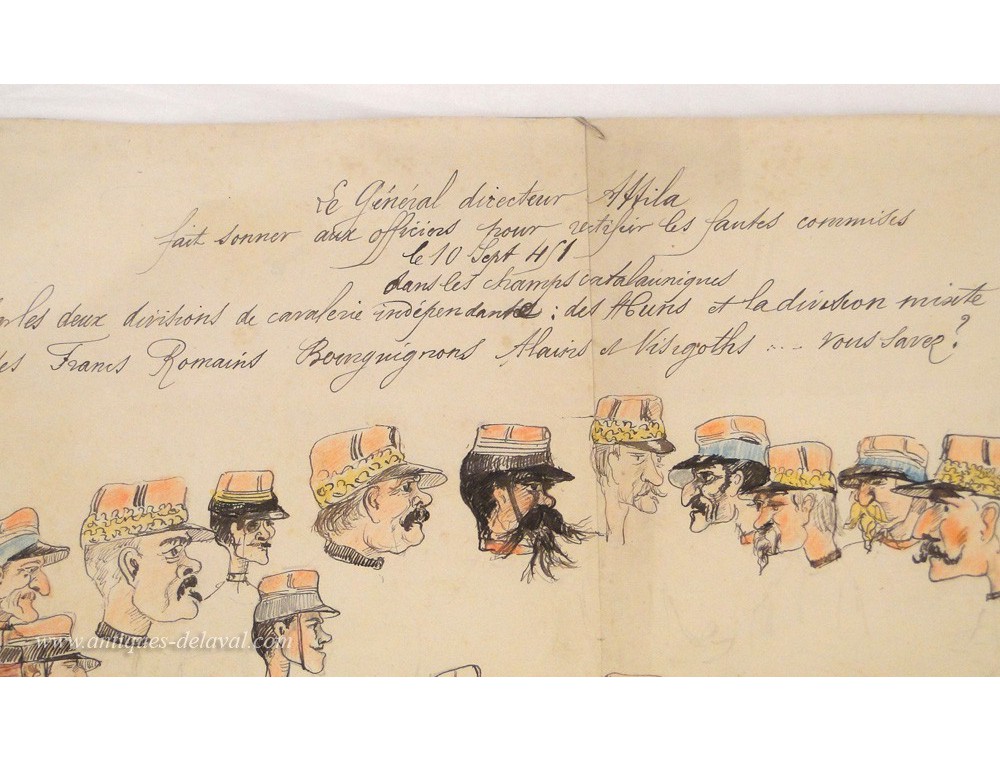 Le Général directeur Attila
fait sonner aux officiers pour rectifier les fautes commises
le 10 Sept 451
dans les champs catalauniques
les deux divisions de cavalerie indépendante : des Huns et la division mixte
des Francs Romains Bourguignons Alains et Visigoths .... vous savez ?
www.antiques-delaval.com